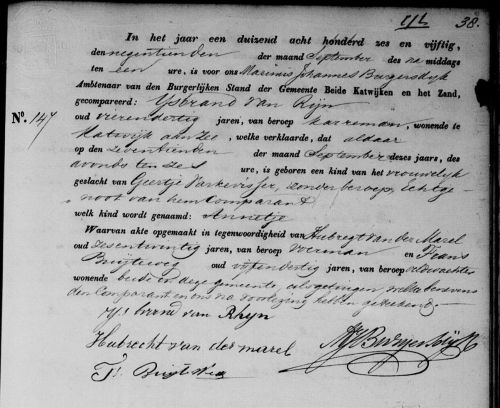 38.
In het jaar een duizend acht honderd zes en vijftig,
den negentienden der maand September des na middags
ten een ure, is voor ons Marinus Johannes Burgersdijk
Ambtenaar van den Burgerlijken Stand der Gemeente Beide Katwijken en het Zand,
gecompareerd: IJsbrand van Rijn
N°. 147
oud vierendertig jaren, van beroep karreman, wonende te
Katwijk aan Zee, welke verklaarde, dat aldaar
op den zeventienden der maand September dezes jaars, des
avonds ten zes ure, is geboren een kind van het vrouwelijk
geslacht van Geertje Varkevisser, zonder beroep, echtge-
noot van hem Comparant
welk kind wordt genaamd: Annetje
Waarvan akte opgemaakt in tegenwoordigheid van Hubregt van der Marel
oud zesentwintig jaren, van beroep voerman en Frans
oud vijfendertig jaren, van beroep veldwachter
wonende beide in deze gemeente, als getuigen welke benevens
den Comparant en ons na voorlezing hebben geteekend
IJsbrand van Rhyn
Hubrecht van der marel
MJ Burgersdijk